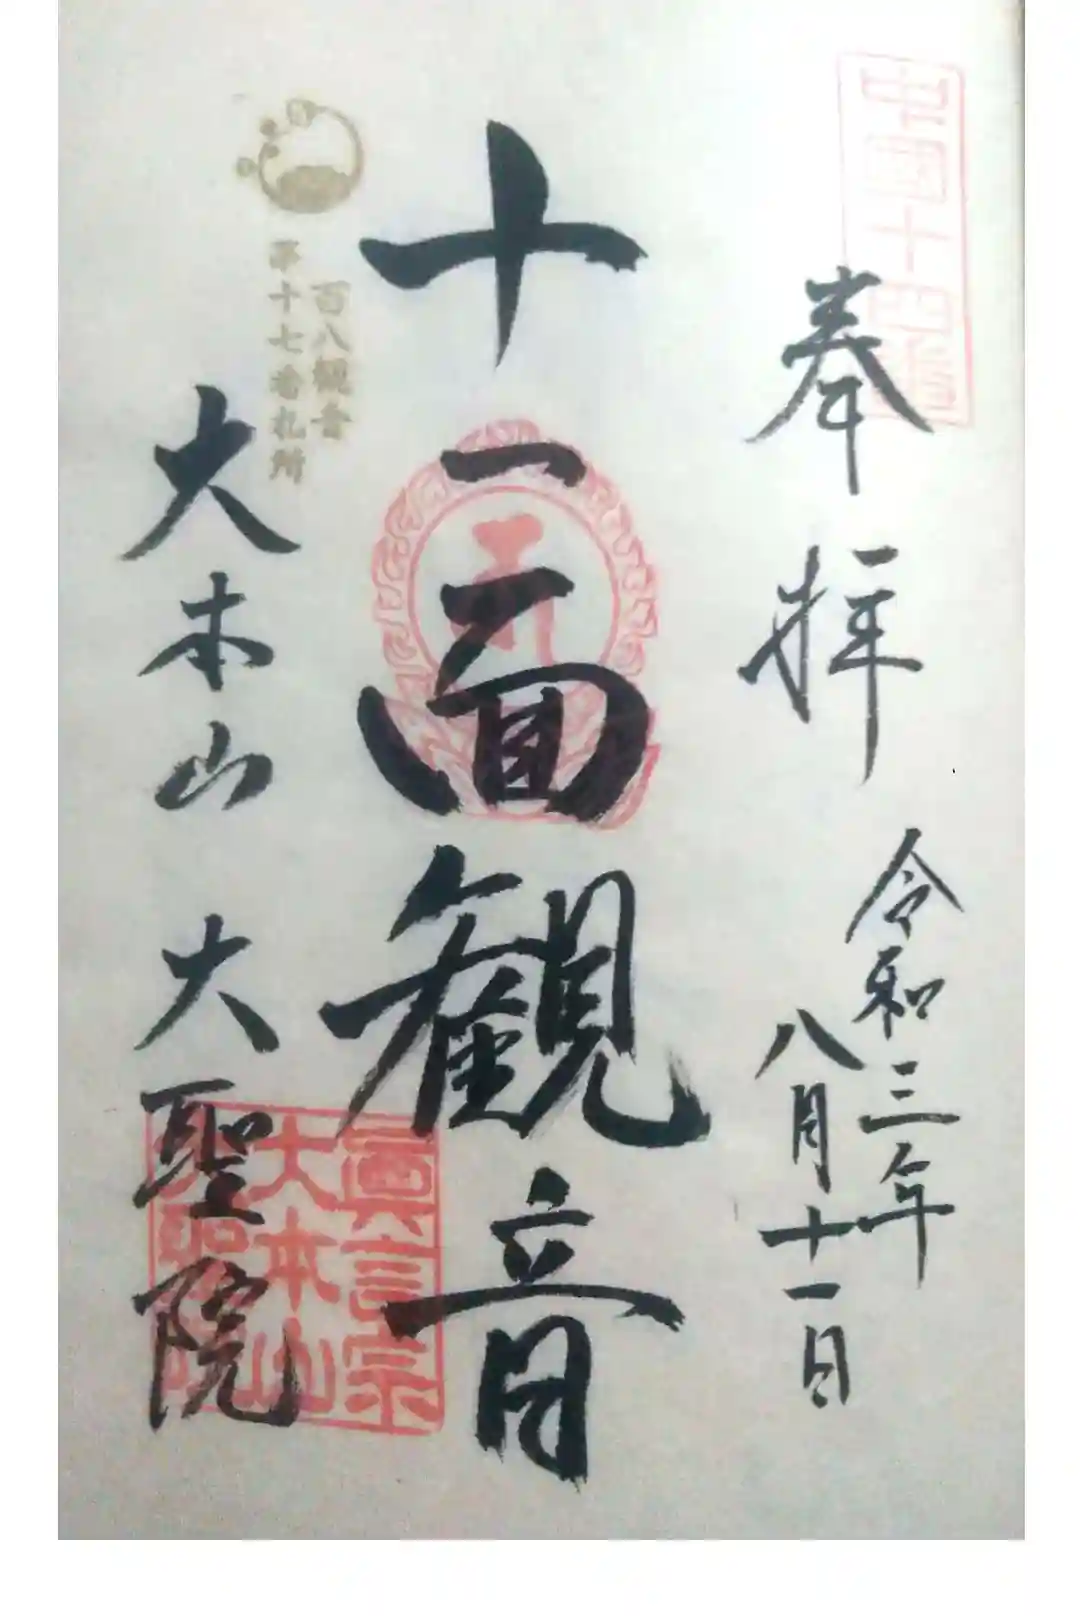 中國十四番
奉拝
令和三年
八月十一日
十一面観音
百八観音
第十七番札所
大本山 大聖院
眞言宗
大本山
大聖院